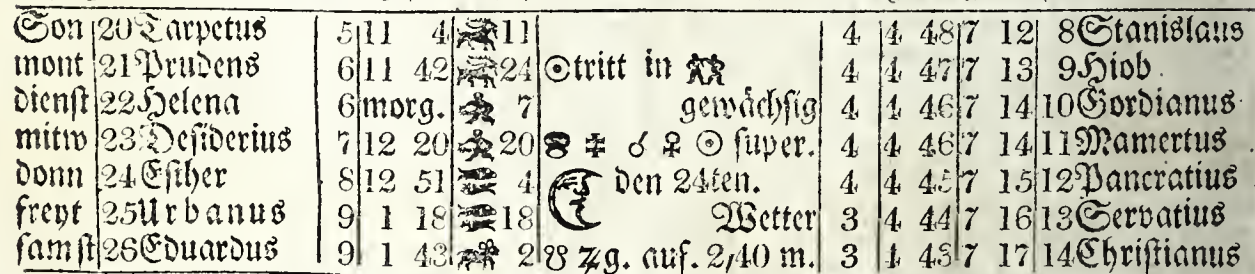 Son 20 Tarpetus 5 11 4 11 4 4 48 7 12 8 Stanislaus
mont 21 Prudens 6 11 42 24 ☉tritt in ♊ 4 4 47 7 13 9 Hiob
dienst 22 Helena 6 morg. 7 gewächsig 4 4 46 7 14 10 Gordianus
mittw 23 Desiderius 7 12 20 20 ☌ ♀ ☉ super. 4 4 46 7 14 11 Mamertus
donn 24 Esther 8 12 51 4 ☾ den 24ten. 4 4 45 7 15 12 Pancratius
freyt 25 Urbanus 9 1 18 18 Wetter 3 4 44 7 16 13 Servatius
samst 26 Eduardus 9 1 43 2 ☋ ♃g. auf. 2,40 m. 3 4 43 7 17 14 Christianus